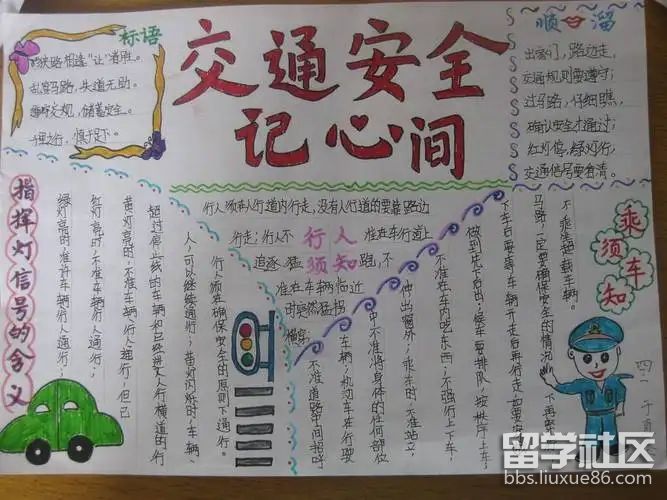 标语
狭路相逢"让"者胜。
乱穿马路,头道无助。
遵守交规,储蓄安全。
千里之行,慎于足下。
交通安全
记心间
顺溜
出家门,路边走,
交通规则要遵守;
过马路,仔细瞧,
确认安全才通过;
红灯停,绿灯行,
交通信号要看清。
指挥灯信号的含义
绿灯亮时,准许车辆行人通行;
红灯亮时,不准车辆行人通行;
黄灯亮时,不准车辆行人通行,但已
超过停止线的车辆和已经进入人行横道的行
人,可以继续通行;黄灯闪烁时,车辆、
行人须在确保安全的原则下通行。
行人须知
行人须在人行道内行走,没有人行道的要靠路边
行走;行人不准在车行道上
追逐、猛跑,不
准在车辆临近
时突然猛拐
横穿
乘车须知
不乘坐超载车辆。
马路,一定要确保安全的情况下再
下车后要等车辆开走后再行走
做到先下后上,候车要排队,按秩序上车;
不准在车内吃东西;不强行上下车,
伸出窗外;乘车时,不准站立
中不准将身体的任何部位
车辆;机动车在行驶
不准道路中间招呼
四一
留学社区
bbs.liuxue86.com